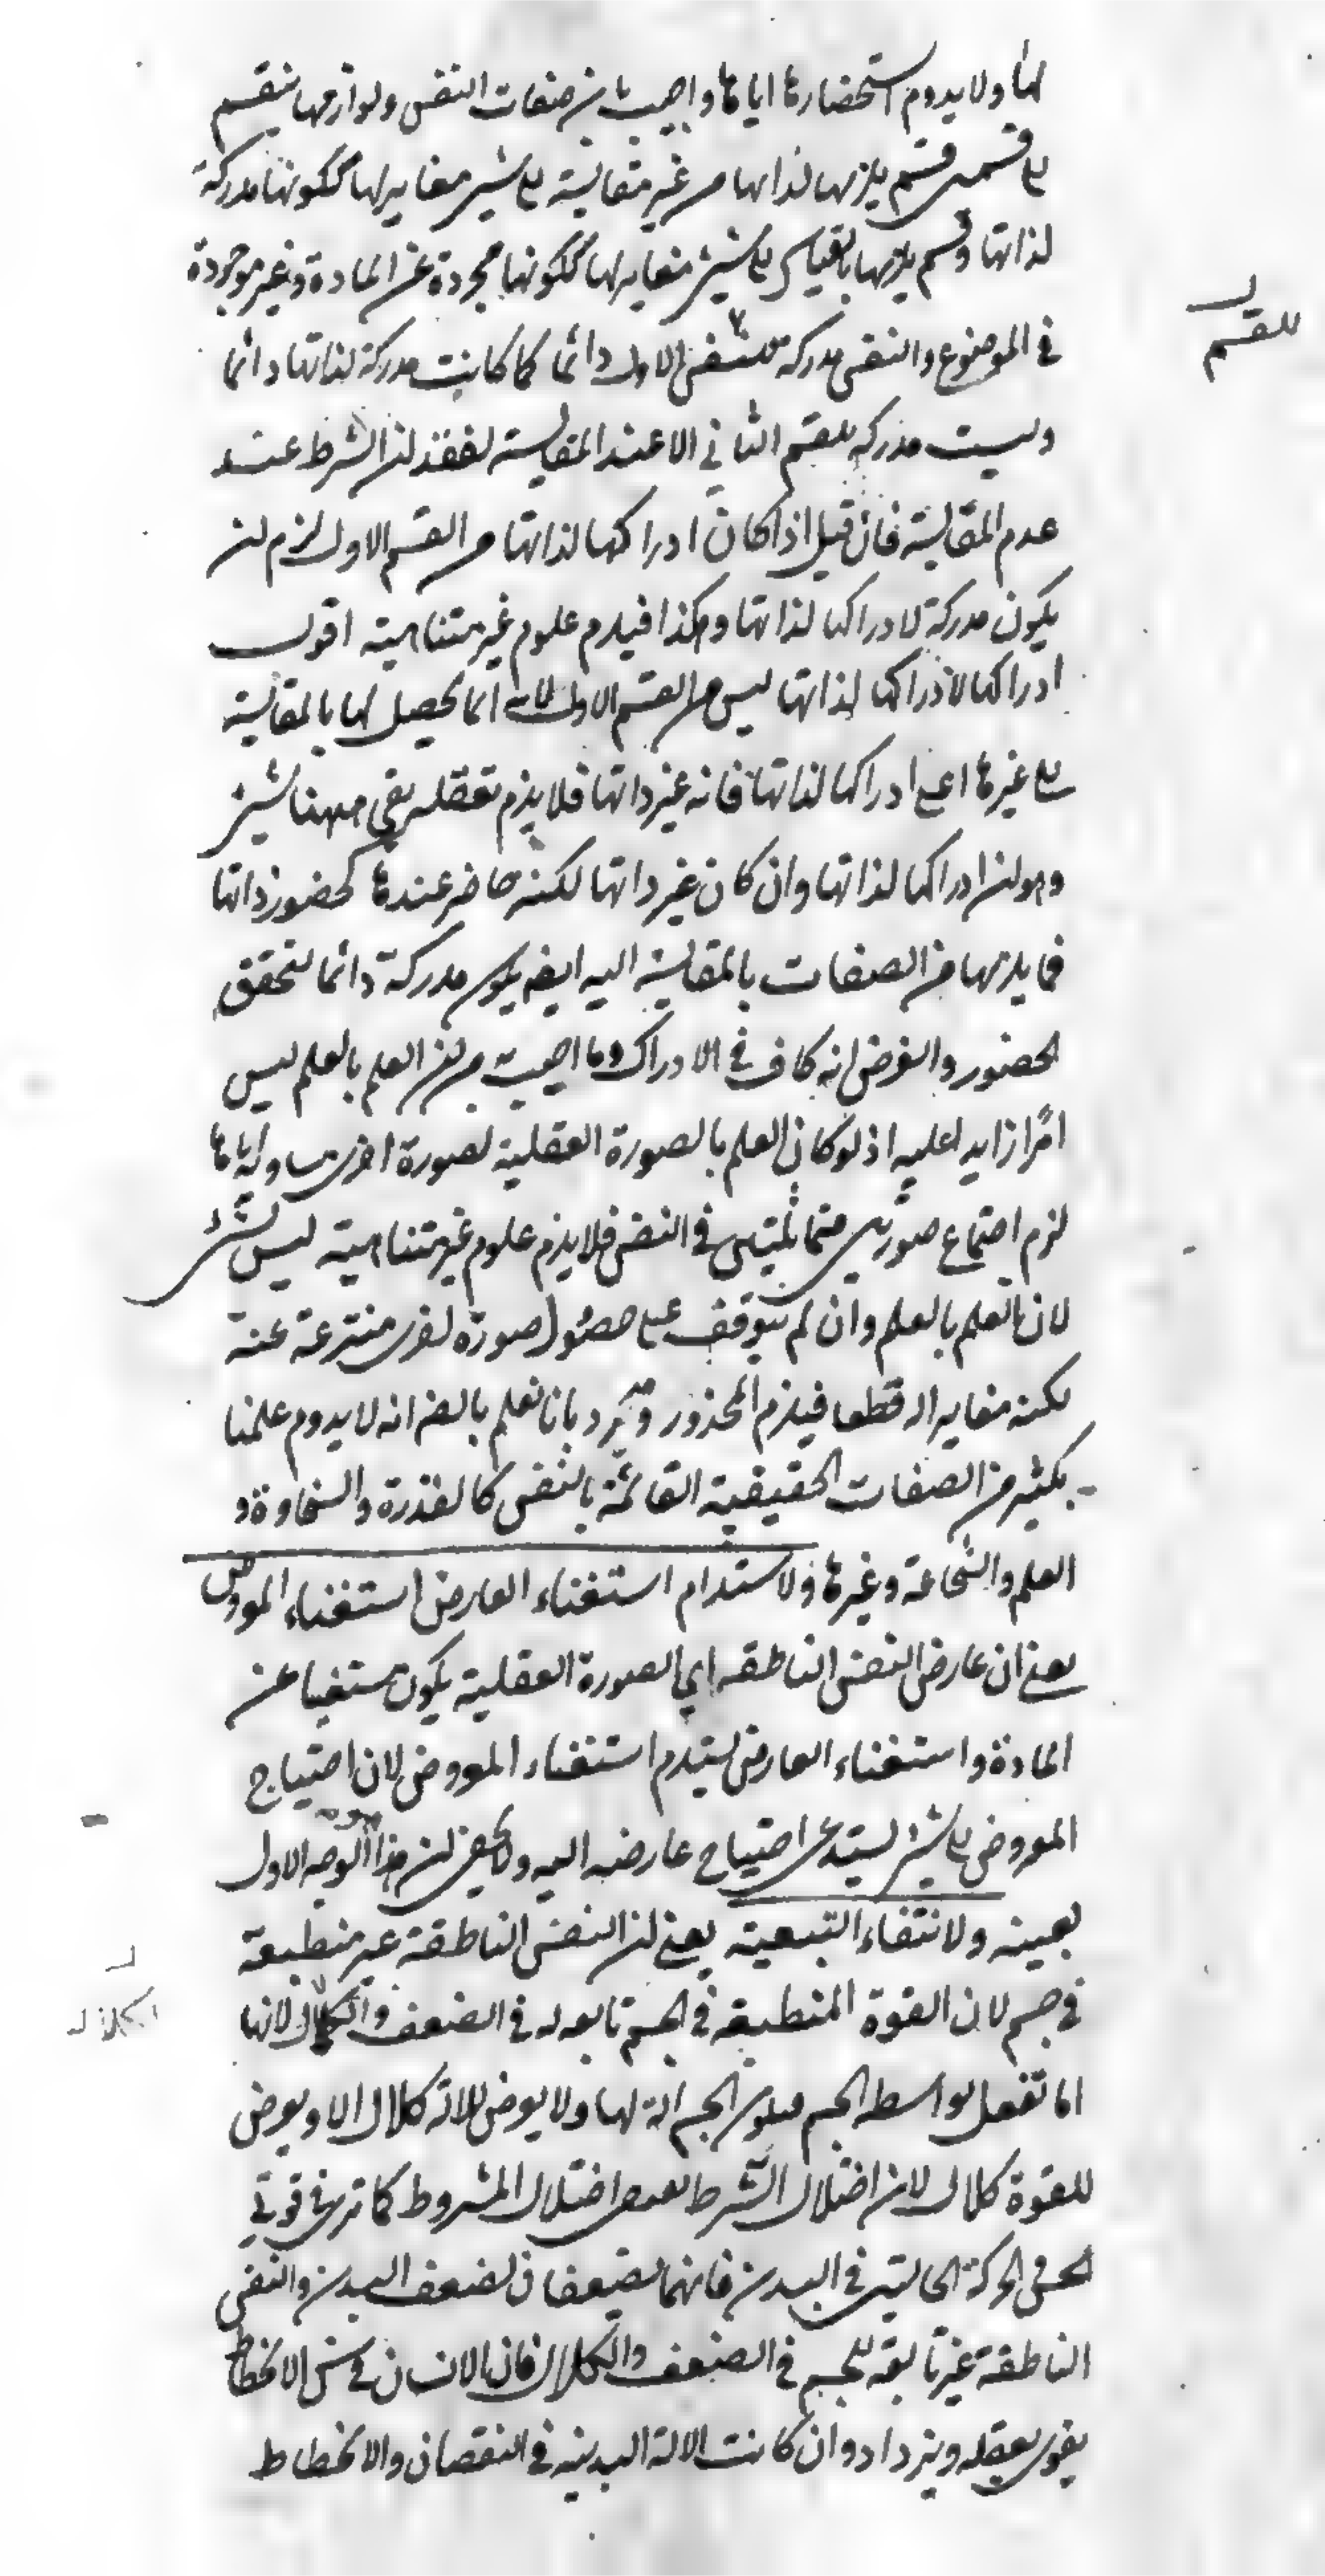 لها ولا يدوم استحضارها اياها واجيب بان صفات النفس ولوازمها ينقسم
على قسمين قسم يلزمها لذاتها من غير مقايسة على شيئ مغاير لها ككونها مدركة
لذاتها وقسم يلزمها بالقياس على شيئ مغاير لها ككونها مجردة عن المادة وغير موجودة
في الموضوع والنفس مدركة الاول دائما كما كانت مدركة لذاتها دائما
للقسم
وليست مدركة للقسم الثاني الا عند المقايسة لفقدان الشرط عند
عدم المقايسة فان قيل اذا كان ادراكها لذاتها من القسم الاول لزم ان
يكون مدركة لادراكها لذاتها وهكذا فيلزم علوم غير متناهية اقول
ادراكها لادراكها لذاتها ليس من القسم الاول لانه انما يحصل لها بالمقايسة
على غيرها اعني ادراكها لذاتها فانه غير ذاتها فلا يلزم تعقله بقي ههنا شيئ
وهو ان ادراكها لذاتها وان كان غير ذاتها لكنه حاضر عندها كحضور ذاتها
فما يلزمها من الصفات بالمقايسة اليه ايضا يكون مدركة دائما لتحقق
الحضور والفرض انه كاف في الادراك وما اجيب من ان العلم بالعلم ليس
امرا زايدا عليه اذ لو كان العلم بالصورة العقلية لصورة اخرى مساوية اياها
لزم اجتماع صورتين متماثلتين في النفس فلا يلزم علوم غير متناهية ليس بشيئ
لان العلم بالعلم وان لم يتوقف على حصول صورة اخرى منتزعة عنه
لكنه مغاير له قطعا فيلزم المحذور ويرد بانا نعلم بالضر انه لا يدوم علمنا
بكثير من الصفات الحقيقية القائمة بالنفس كالقدرة والسخاوة و
العلم والشجاعة وغيرها ولاستلزام استغناء العارض استغناء المعروض
يعني ان عارض النفس الناطقة اي الصورة العقلية يكون مستغنيا عن
المادة واستغناء العارض يستلزم استغناء المعروض لان احتياج
المعروض على شيئ يستدعي احتياج عارضه اليه ولا يخفى ان هذا الوجه الاول
بعينه ولانتفاء التبعية يعني ان النفس الناطقة غير منطبعة
في جسم لان القوة المنطبعة في الجسم تابعة له في الضعف والكلال لانها
انما تفعل بواسطة الجسم فيكون الجسم الة لها ولا يعرض للالة كلال الا ويعرض
للقوة كلال لان اختلال الشرط يقتضي اختلال المشروط كما ترى في قوتي
الحس والحركة الحاليتين في البدن فانهما يضعفان لضعف البدن والنفس
الناطقة غير تابعة للجسم في الضعف والكلال فان الانسان في سن الانحطاط
يقوى بعقله ويزداد وان كانت الالة البدنية في النقصان والانحطاط